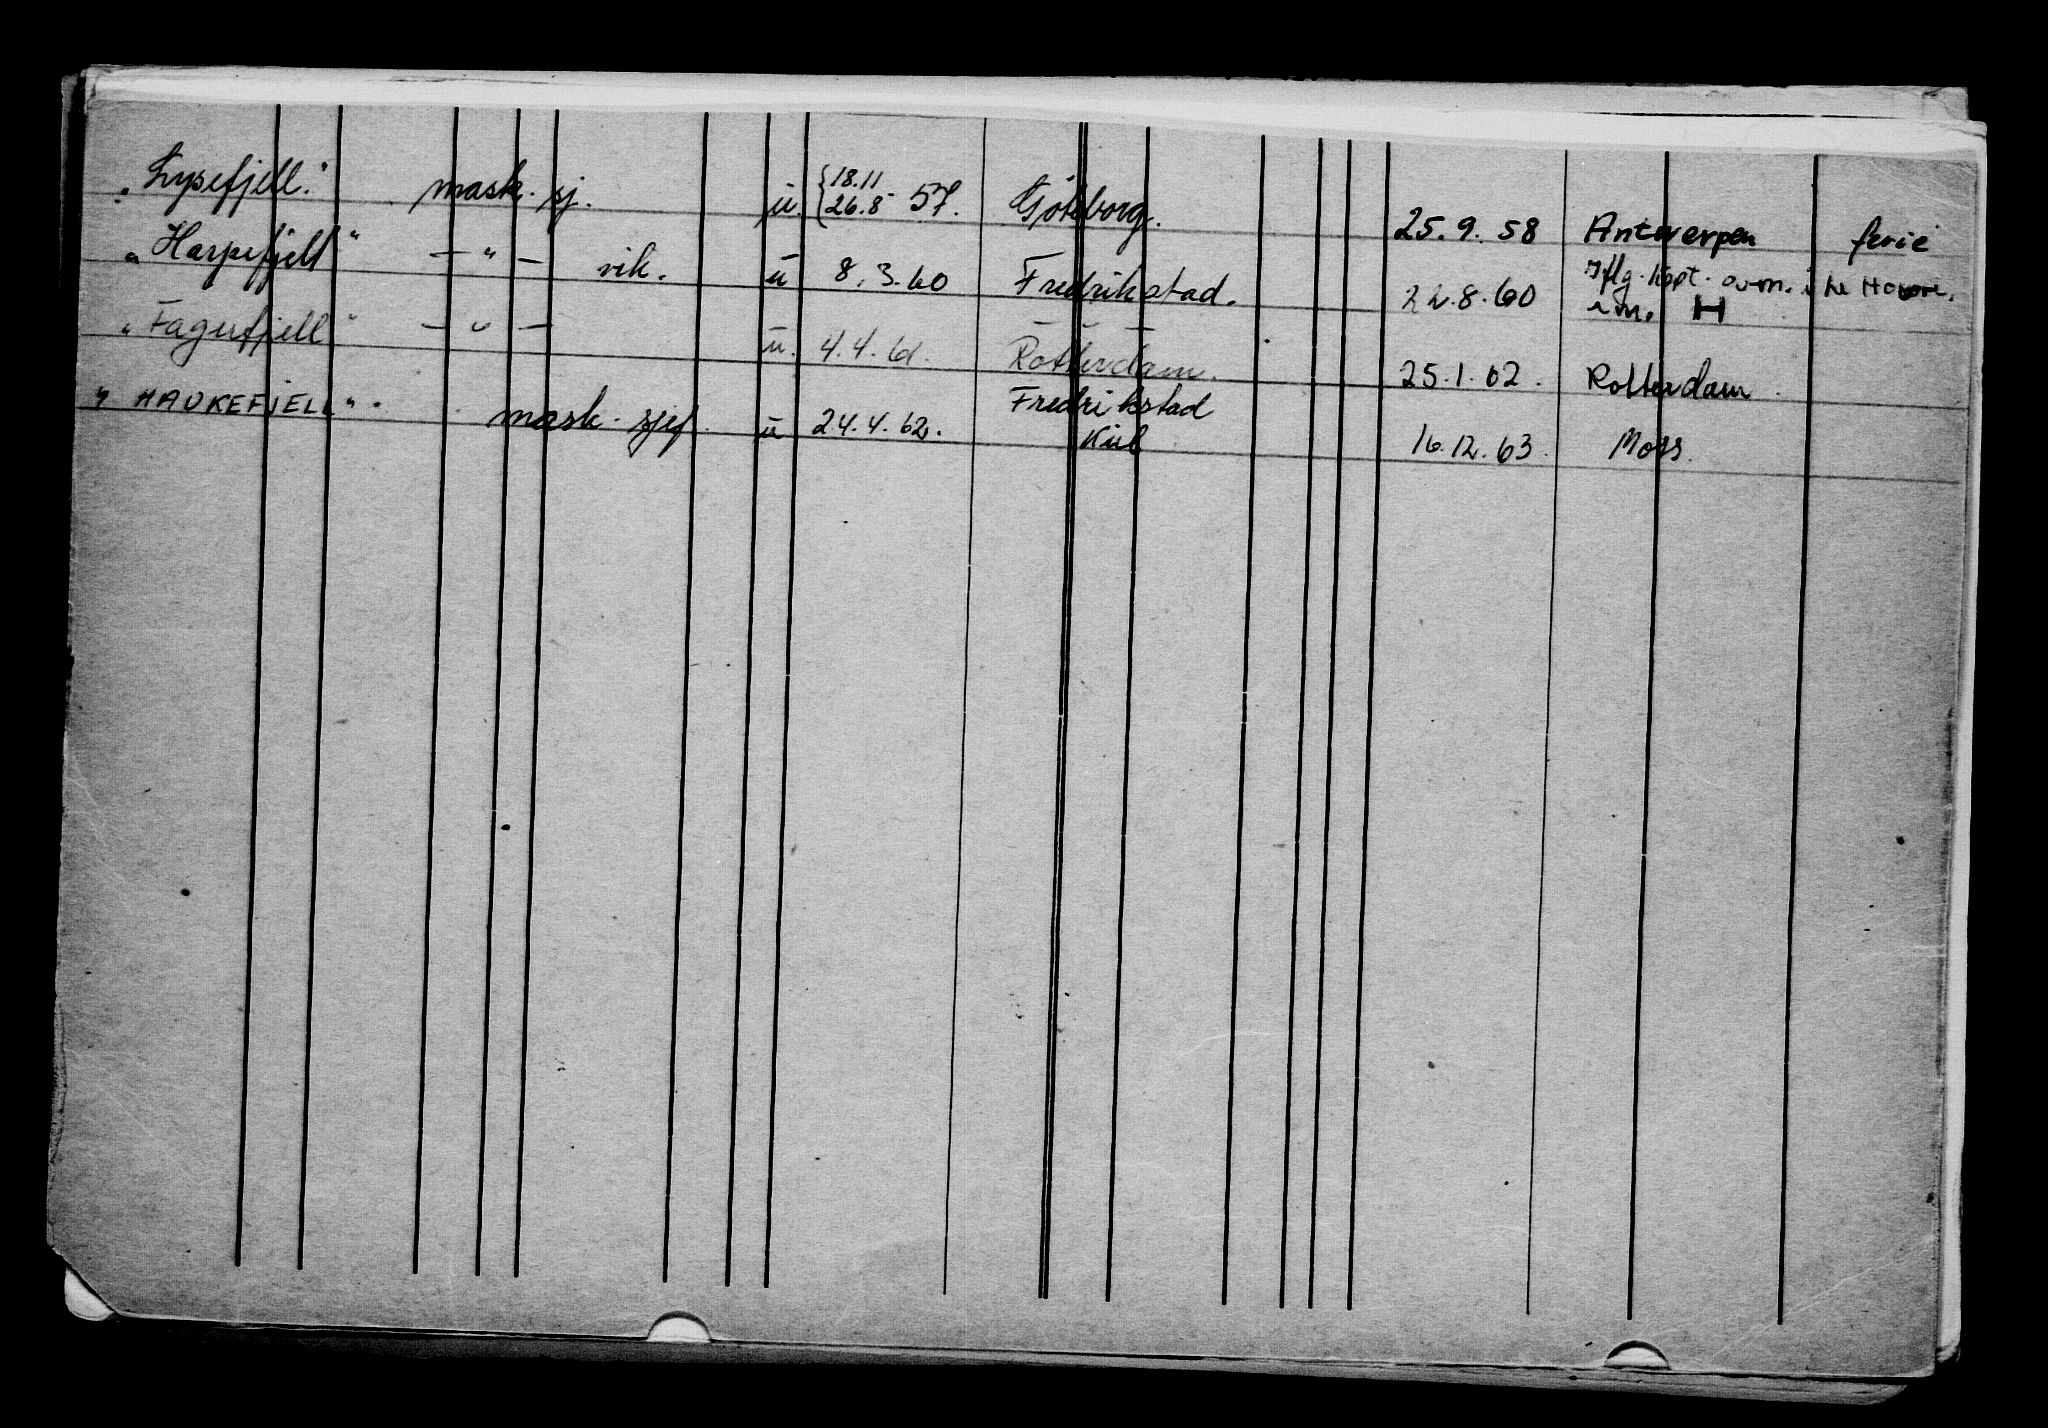 "Lysefjell." mask. sj. u. {18.11 26.8 57. Göteborg. 25.9.58 Antwerpen ferie
"Harpefjell" — " — vik. u 8.3.60 Fredrikstad. 22.8.60 Iflg. kapt. avm. i Le Havre.
H
"Fagerfjell" — " — u. 4.4.61. Rotterdam. 25.1.62. Rotterdam
"HAUKEFJELL". mask. sjef u 24.4.62. Fredrikstad 16.12.63. Moss.
Kiel